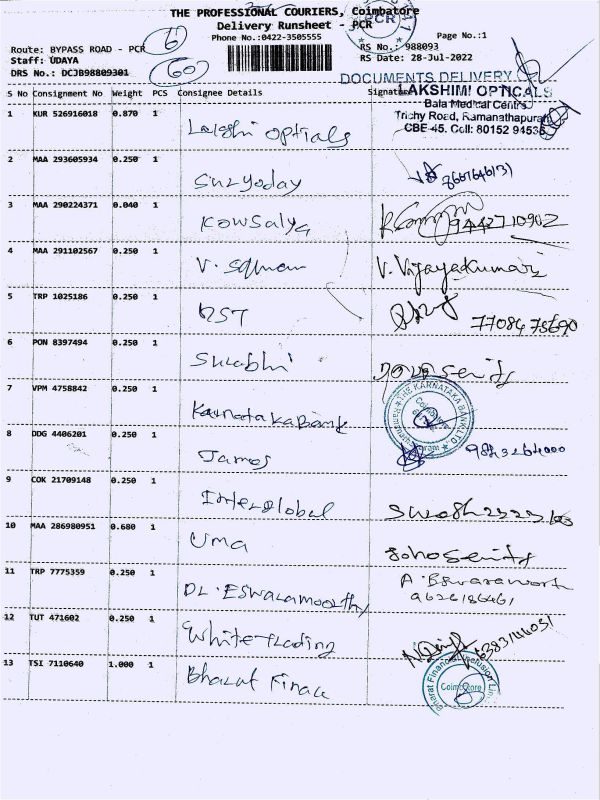 THE PROFESSIONAL COURIERS, Coimbatore
Delivery Runsheet - PCR
Phone No.:0422-3505555
Page No.:1
Route: BYPASS ROAD - PCR
Staff: UDAYA
DRS No.: DCJB98809301
6
60
PCR
RS No.: 988093
RS Date: 28-Jul-2022
DOCUMENTS DELIVERY
S No Consignment No Weight PCS Consignee Details Signature
LAKSHMI OPTICALS
Bala Medical Centre
Trichy Road, Ramanathapuram
CBE 45. Cell: 80152 94536
1 KUR 526916018 0.870 1 Lakshi opticals
2 MAA 293605934 0.250 1 Suryoday
3 MAA 290224371 0.040 1 Kowsalya 9442710902
4 MAA 291102567 0.250 1 V. V. Vijayakumari
5 TRP 1025186 0.250 1 DST 77084 75690
6 PON 8397494 0.250 1 Surabhi
7 VPM 4758842 0.250 1 Karnataka Bank
THE KARNATAKA BANK LTD.
Coimbatore
8 DDG 4406201 0.250 1 James
9 COK 21709148 0.250 1 Interglobal
10 MAA 286980951 0.680 1 Uma
11 TRP 7775359 0.250 1 DL. Eswaramoorthy
12 TUT 471602 0.250 1 White trading
13 TSI 7110640 1.000 1 Bharat Finace
Bharat Financial Inclusion
Coimbatore